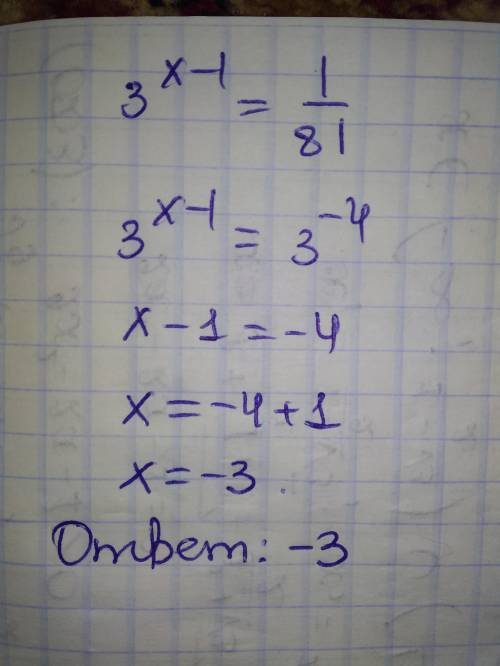 3^{x-1} = \frac{1}{81}
3^{x-1} = 3^{-4}
x - 1 = -4
x = -4 + 1
x = -3.
Ответ: -3